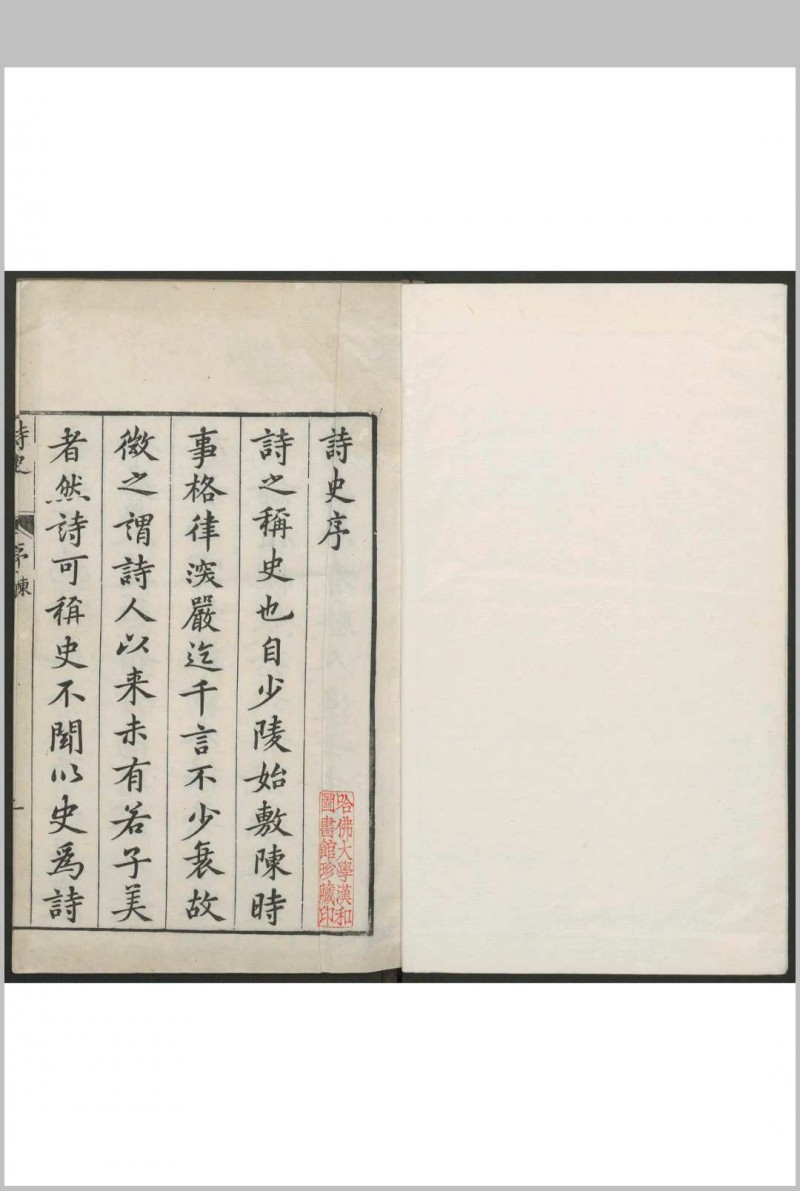 詩史序
詩之稱史也自少陵始敷陳時
事格律深嚴迄千言不少衰故
微之謂詩人以来未有若子美
者然詩可稱史不聞以史爲詩
詩史
序
陳
一
哈佛大學漢和
圖書館珍藏印